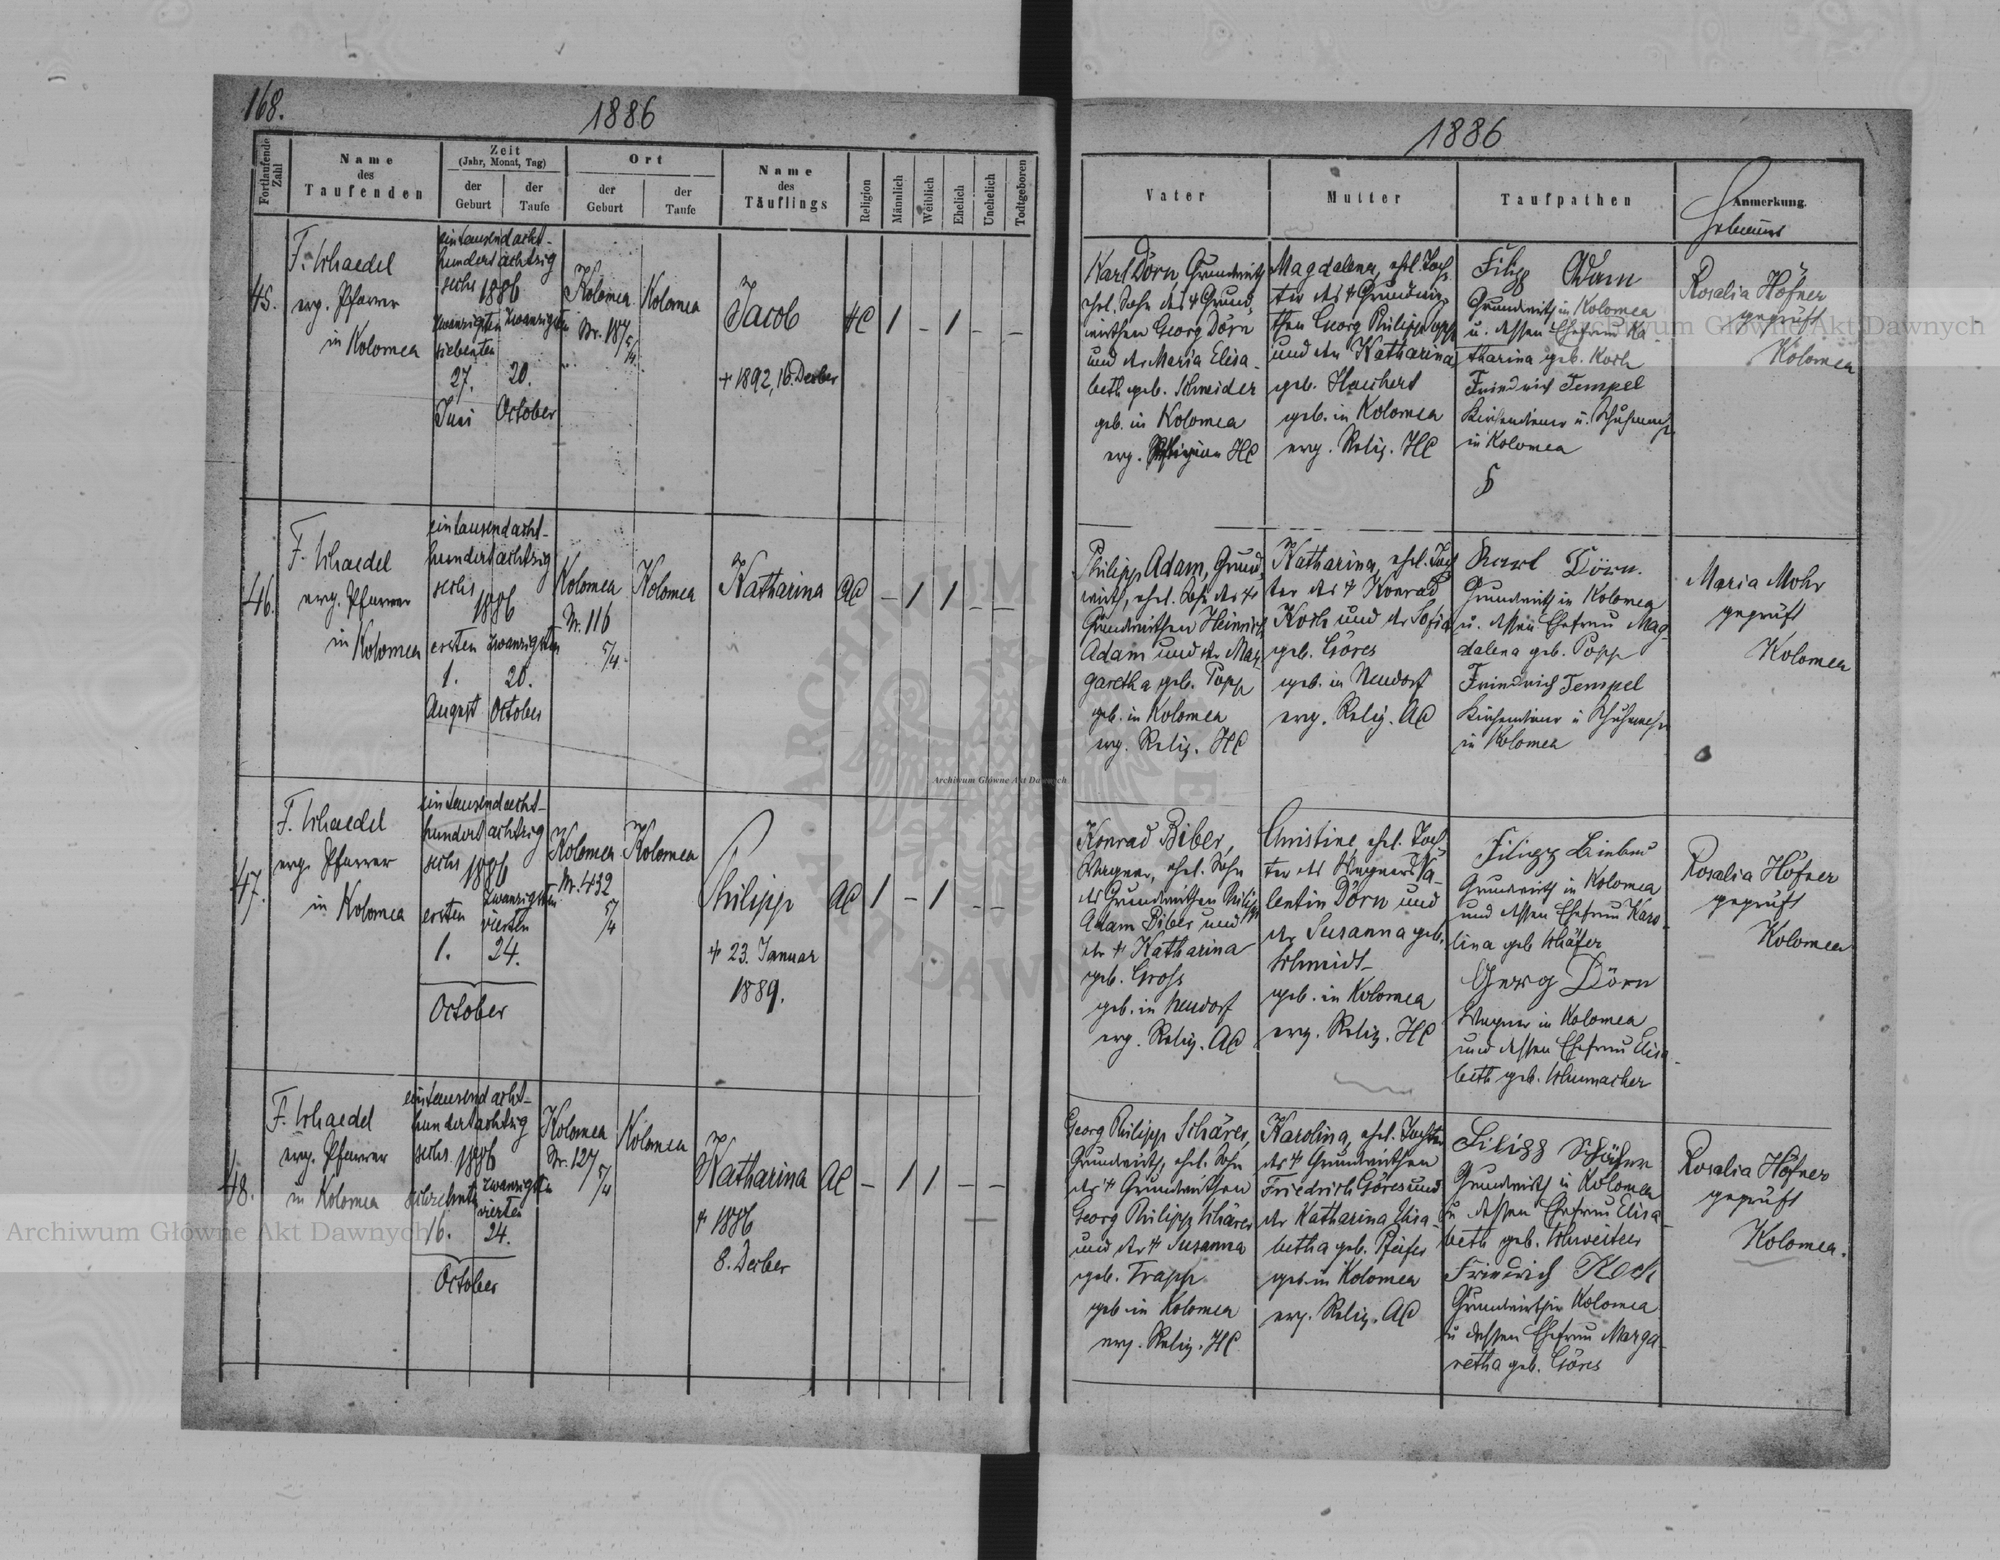 168.
1886
Fortlaufende Zahl
Name des Taufenden
Zeit
(Jahr, Monat, Tag)
der Geburt
der Taufe
Ort
der Geburt
der Taufe
Name des Täuflings
Religion
Männlich
Weiblich
Ehelich
Unehelich
Todtgeboren
45.
F. Schaedel
evg. Pfarrer
in Kolomea
eintausendacht-
hundertachtzig
sechs 1886
zwanzigsten zwanzigsten
siebenten
27. 20.
Juni October
Kolomea
Nr. 187
5/4
Kolomea
Jacob
+ 1892, 16. Dezber
HC
1 – 1 – –
46.
F. Schaedel
evg. Pfarrer
in Kolomea
eintausendacht-
hundertachtzig
sechs
1886
ersten zwanzigsten
1. 20.
August October
Kolomea
Nr. 116
5/4.
Kolomea
Katharina
AC
– 1 1 – –
47.
F. Schaedel
evg. Pfarrer
in Kolomea
eintausendacht-
hundertachtzig
sechs 1886
ersten zwanzigsten
vierten
1. 24.
October
Kolomea
Nr. 432
5/4
Kolomea
Philipp
+ 23. Januar
1889.
AC
1 – 1 – –
48.
F. Schaedel
evg. Pfarrer
in Kolomea
eintausendacht-
hundertachtzig
sechs 1886
sechzehnten zwanzigsten
vierten
16. 24.
October
Kolomea
Nr. 127
5/4
Kolomea
Katharina
+ 1886
8. Dezber
AC
– 1 1 – –
1886
Vater
Mutter
Taufpathen
Anmerkung.
Hebamme
Karl Dörn, Grundwirth
ehel. Sohn des + Grund-
wirthen Georg Dörn
und der Maria Elisa-
beth geb. Schneider
geb. in Kolomea
evg. Religion HC
Magdalena, ehel. Toch-
ter des + Grundwir-
then Georg Philipp Popp
und der Katharina
geb. Haubert
geb. in Kolomea
evg. Relig. HC
Filipp Adam
Grundwirth in Kolomea
u. dessen Ehefrau Ka-
tharina geb. Koch
Friedrich Tempel
Kirchendiener u. Schuhmacher
in Kolomea
Rosalia Höfner
geprüft
Kolomea
Philipp Adam, Grund-
wirth, ehel. Sohn des +
Grundwirthen Heinrich
Adam und der Mar-
garetha geb. Popp
geb. in Kolomea
evg. Relig. HC
Katharina, ehel. Toch-
ter des + Konrad
Koch und der Sofia
geb. Göres
geb. in Neudorf
evg. Relig. AC
Karl Dörn.
Grundwirth in Kolomea
u. dessen Ehefrau Mag-
dalena geb. Popp
Friedrich Tempel
Kirchendiener u Schuhmacher
in Kolomea
Maria Mohr
geprüft
Kolomea
Konrad Biber,
Wagner, ehel. Sohn
des Grundwirthen Philipp
Adam Biber und
der + Katharina
geb. Gross
geb. in Neudorf
evg. Relig. AC
Christine, ehel. Toch-
ter des Wagners Va-
lentin Dörn und
der Susanna geb.
Schmidt
geb. in Kolomea
evg. Relig. HC
Filipp
Grundwirth in Kolomea
und dessen Ehefrau Karo-
lina geb Schäfer
Georg Dörn
Wagner in Kolomea
und dessen Ehefrau Elisa-
beth geb. Schumacher
Rosalia Höfner
geprüft
Kolomea
Georg Philipp Schärer,
Grundwirth, ehel. Sohn
des + Grundwirthen
Georg Philipp Schärer
und der + Susanna
geb. Trapp
geb in Kolomea
evg. Relig. HC
Karolina, ehel. Tochter
des + Grundwirthen
Friedrich Göres und
der Katharina Elisa-
betha geb. Pfeifer
geb in Kolomea
evg. Relig. AC
Filipp Schäfer
Grundwirth in Kolomea
u dessen Ehefrau Elisa-
beth geb. Schweitzer
Friedrich Koch
Grundwirth in Kolomea
u dessen Ehefrau Marga-
retha geb. Göres
Rosalia Höfner
geprüft
Kolomea.
Archiwum Główne Akt Dawnych
Archiwum Główne Akt Dawnych
Archiwum Główne Akt Dawnych